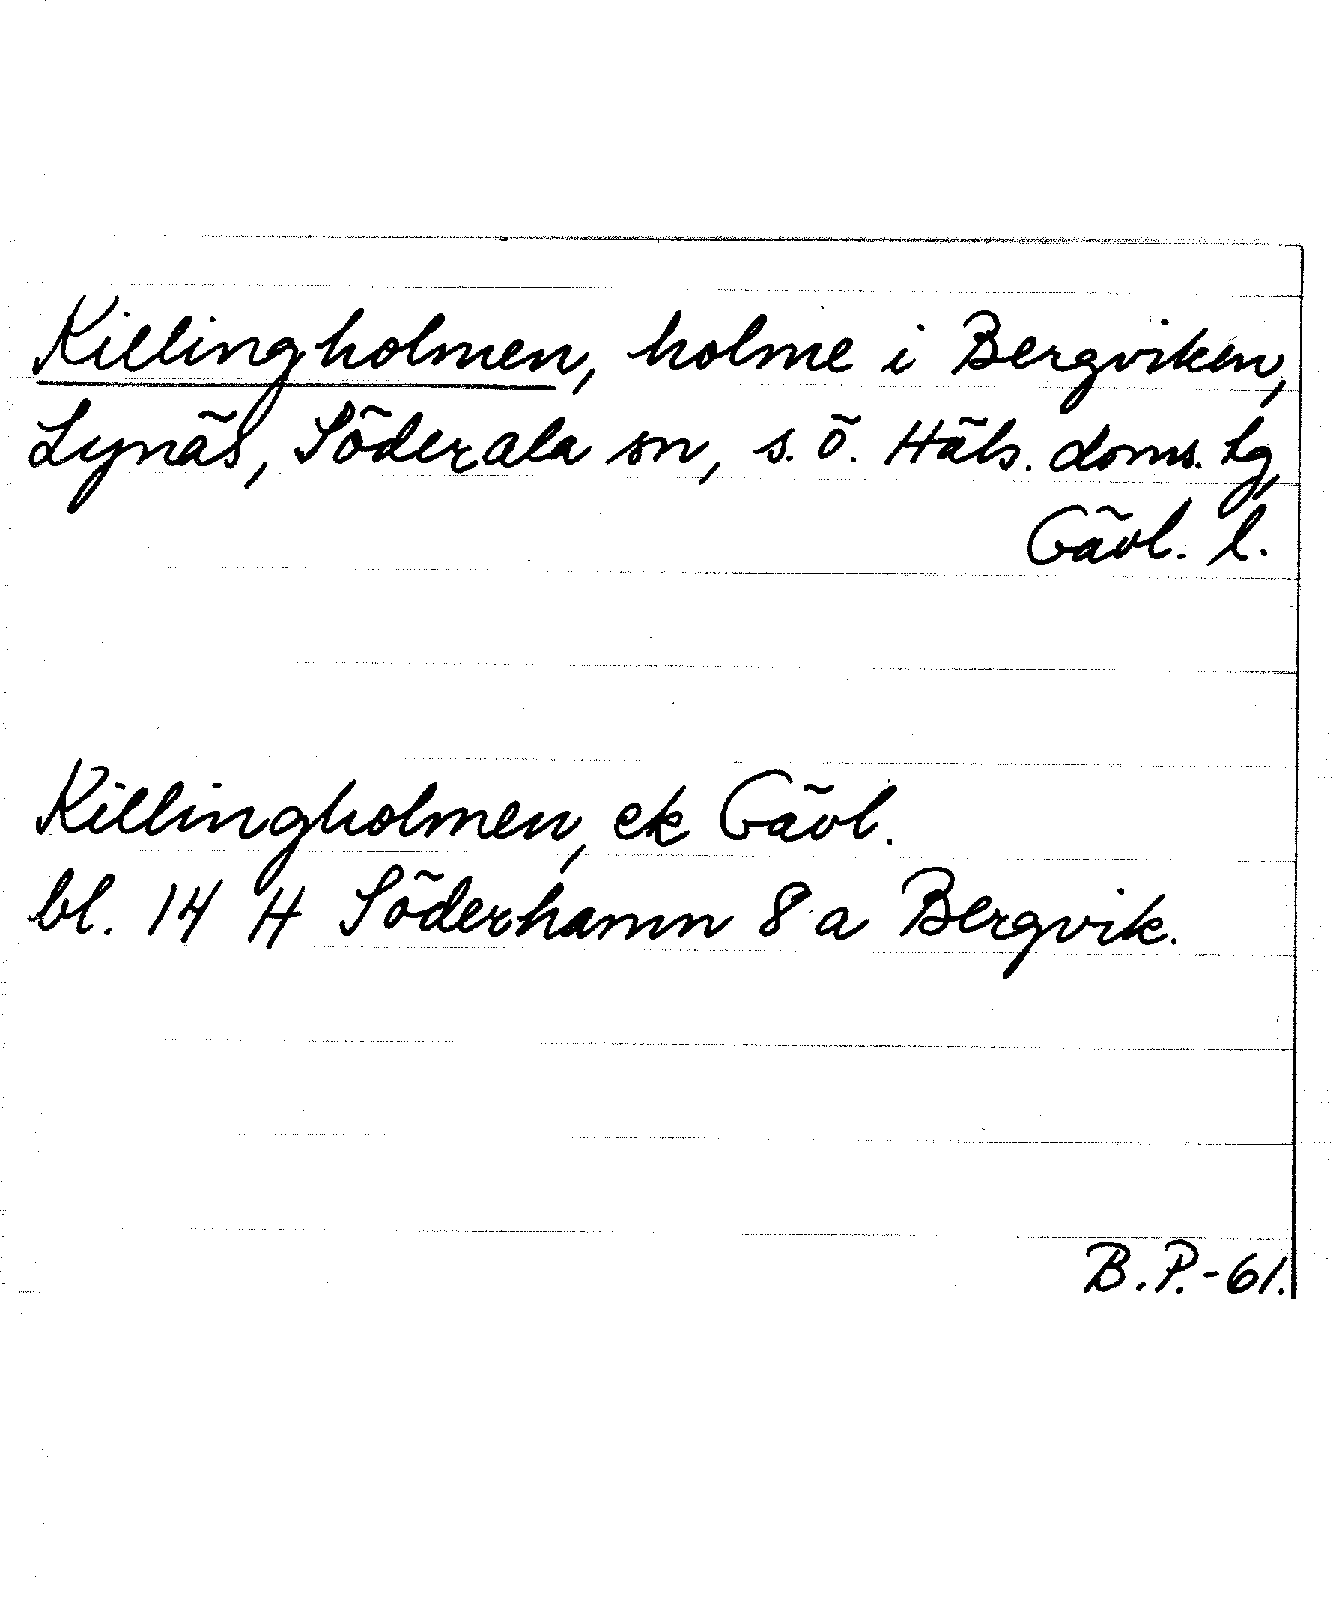 Killingholmen, holme i Bergviken,
Lynäs, Söderala sn, s.ö. Häls. doms. lg,
Gävl. l.
Killingholmen, ek Gävl.
bl. 14 H Söderhamn 8 a Bergvik.
B.P.-61.